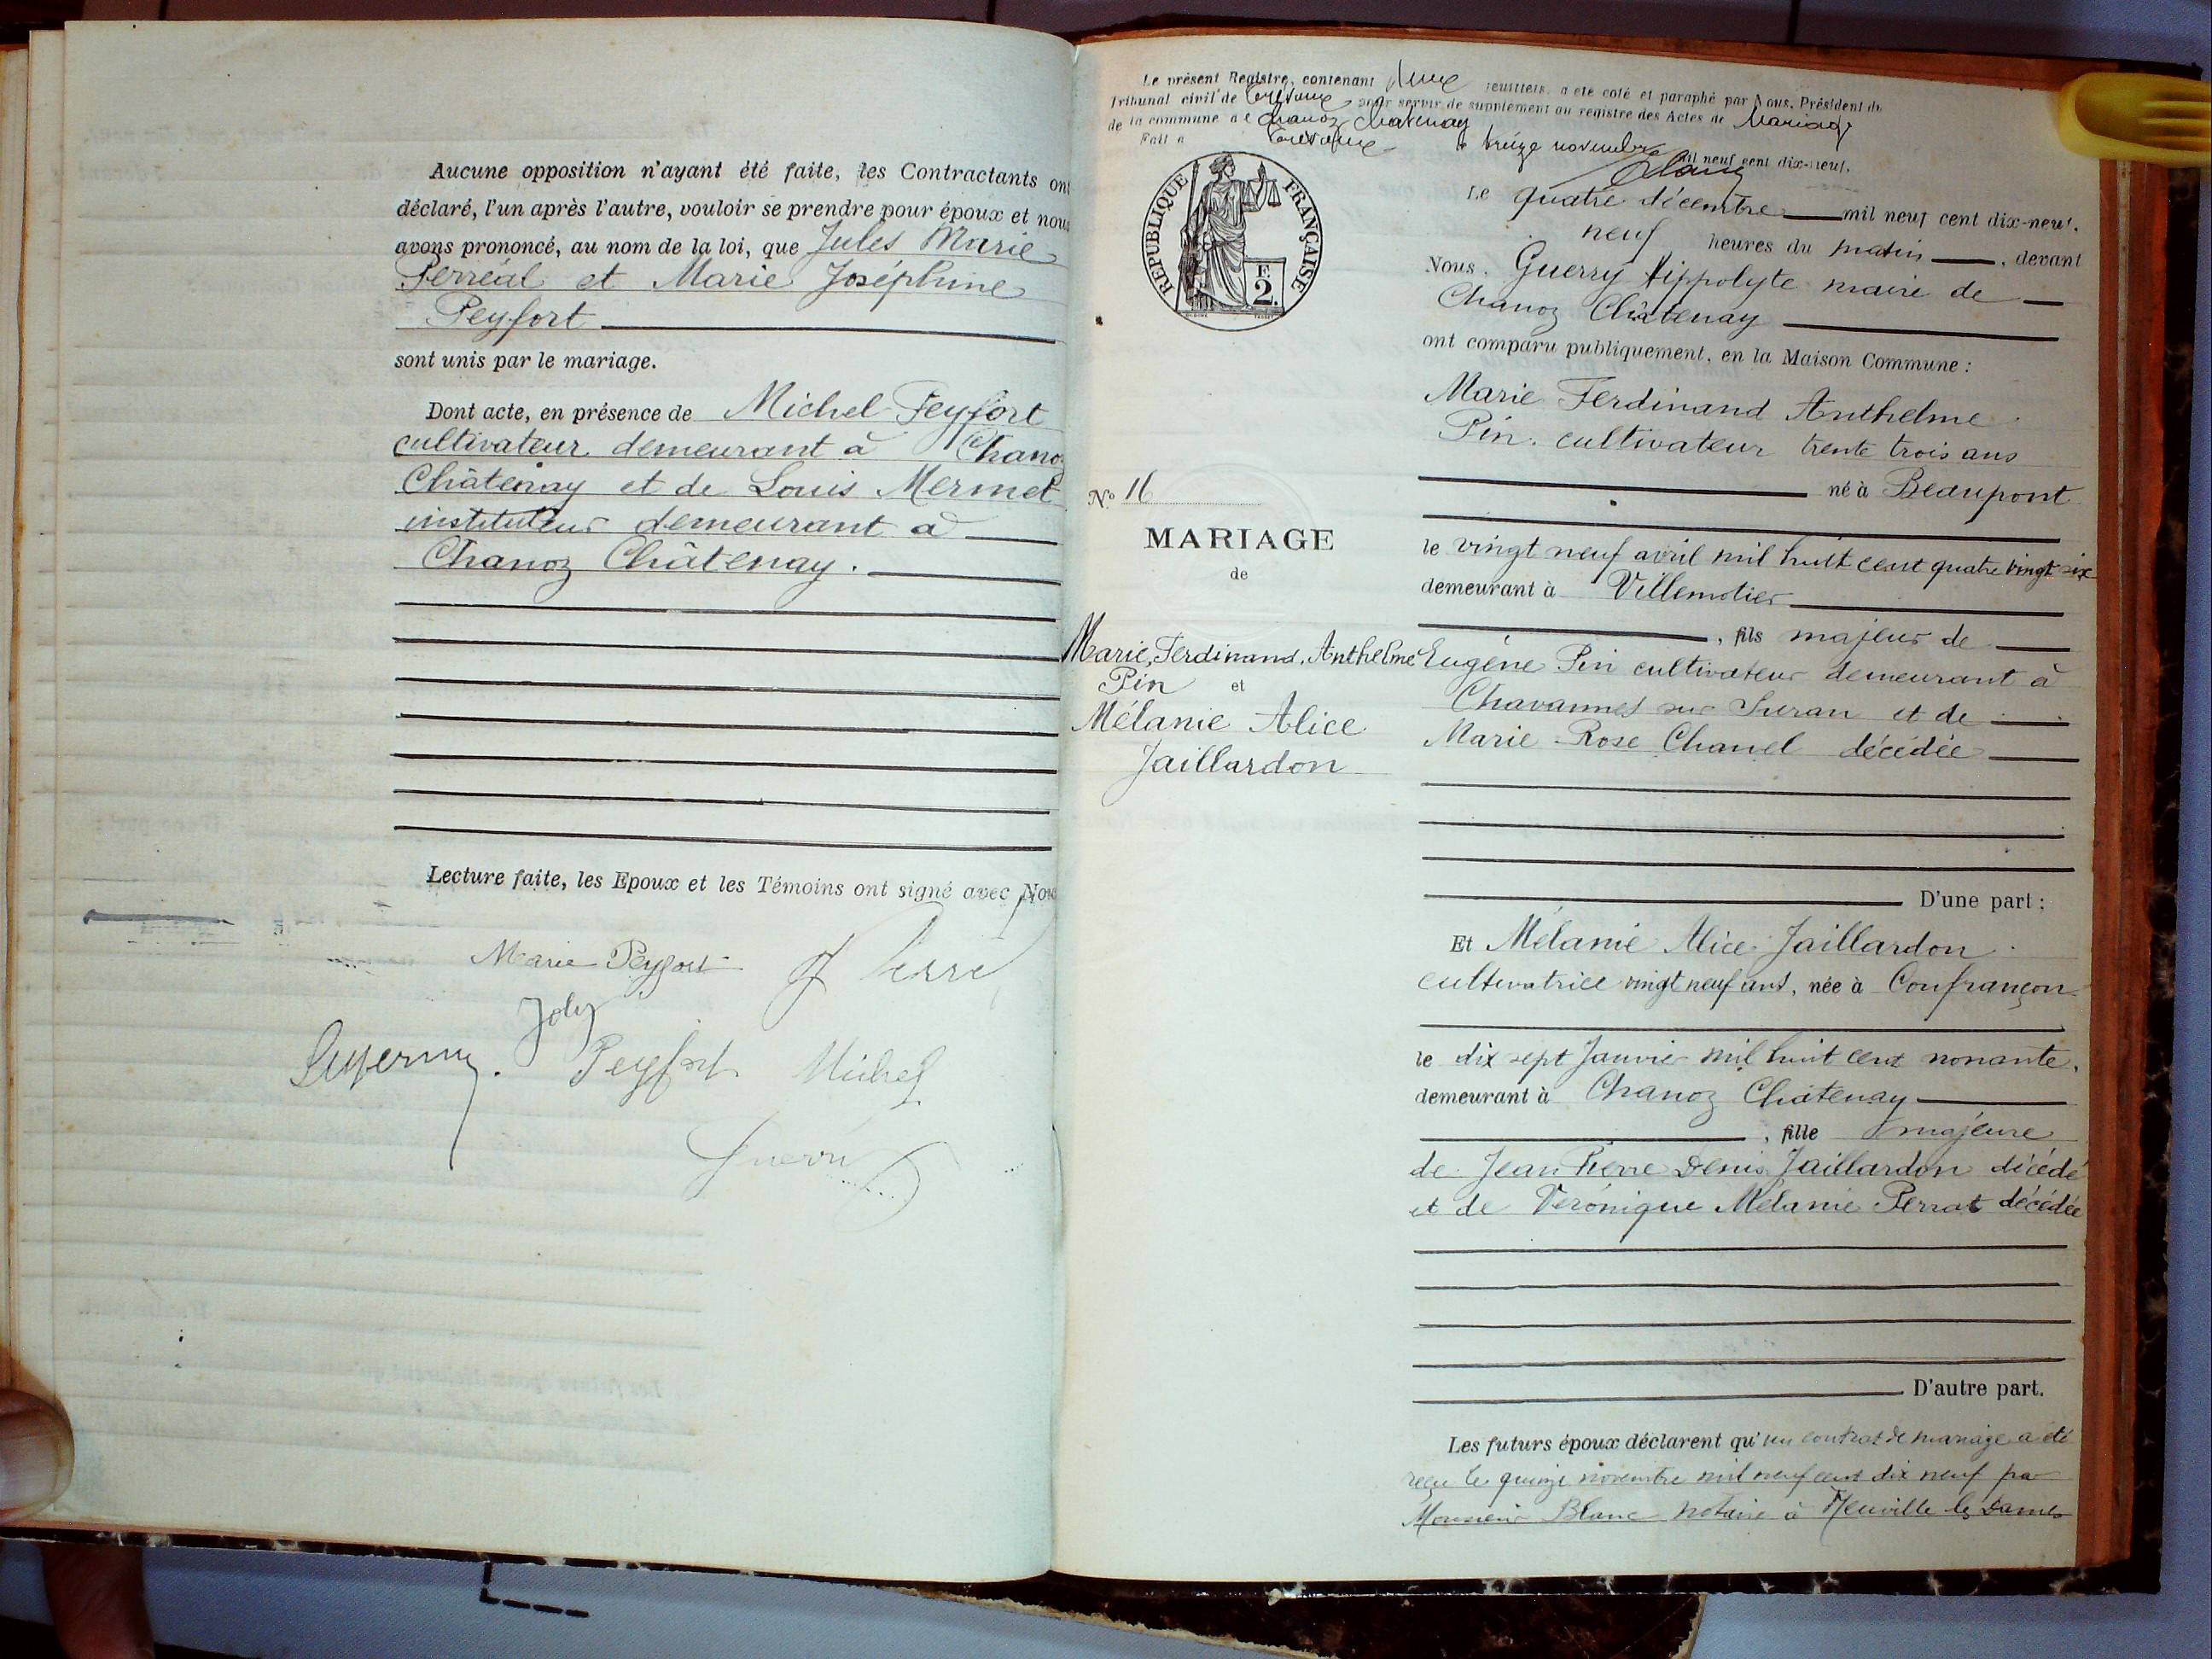 Aucune opposition n'ayant été faite, les Contractants ont
déclaré, l'un après l'autre, vouloir se prendre pour époux et nous
avons prononcé, au nom de la loi, que Jules Marie
Perréal et Marie Joséphine
Peyfort
sont unis par le mariage.
Dont acte, en présence de Michel Peyfort
cultivateur demeurant à Chanoz
Châtenay et de Louis Mermet
instituteur demeurant à
Chanoz Châtenay.
Lecture faite, les Epoux et les Témoins ont signé avec Nous
Marie Peyfort
Joly
Peyfort Michel
Guerry
Le présent Registre, contenant feuillets, a été coté et paraphé par Nous, Président du
Tribunal civil de Trévoux pour servir de supplément au registre des Actes de Mariage
de la commune de Chanoz Chatenay
Fait à Trévoux le treize novembre mil neuf cent dix-neuf.
RÉPUBLIQUE FRANÇAISE
F.
2.
Le quatre décembre mil neuf cent dix-neuf.
neuf heures du matin, devant
Nous, Guerry Hippolyte maire de
Chanoz Châtenay
ont comparu publiquement, en la Maison Commune :
Marie Ferdinand Anthelme
Pin. cultivateur trente trois ans
né à Beaupont
le vingt neuf avril mil huit cent quatre vingt six
demeurant à Villemotier
, fils majeur de
Eugène Pin cultivateur demeurant à
Chavannes sur Suran et de
Marie Rose Chanel décédée
D'une part :
N° 16
MARIAGE
de
Marie, Ferdinand, Anthelme
Pin et
Mélanie Alice
Jaillardon
Et Mélanie Alice Jaillardon
cultivatrice vingt neuf ans, née à Confrançon
le dix sept Janvier mil huit cent nonante.
demeurant à Chanoz Châtenay
, fille majeure
de Jean Pierre Denis Jaillardon décédé
et de Véronique Mélanie Perrat décédée
D'autre part.
Les futurs époux déclarent qu'un contrat de mariage a été
reçu le quinze novembre mil neuf cent dix neuf par
Monsieur Blanc notaire à Neuville les Dames